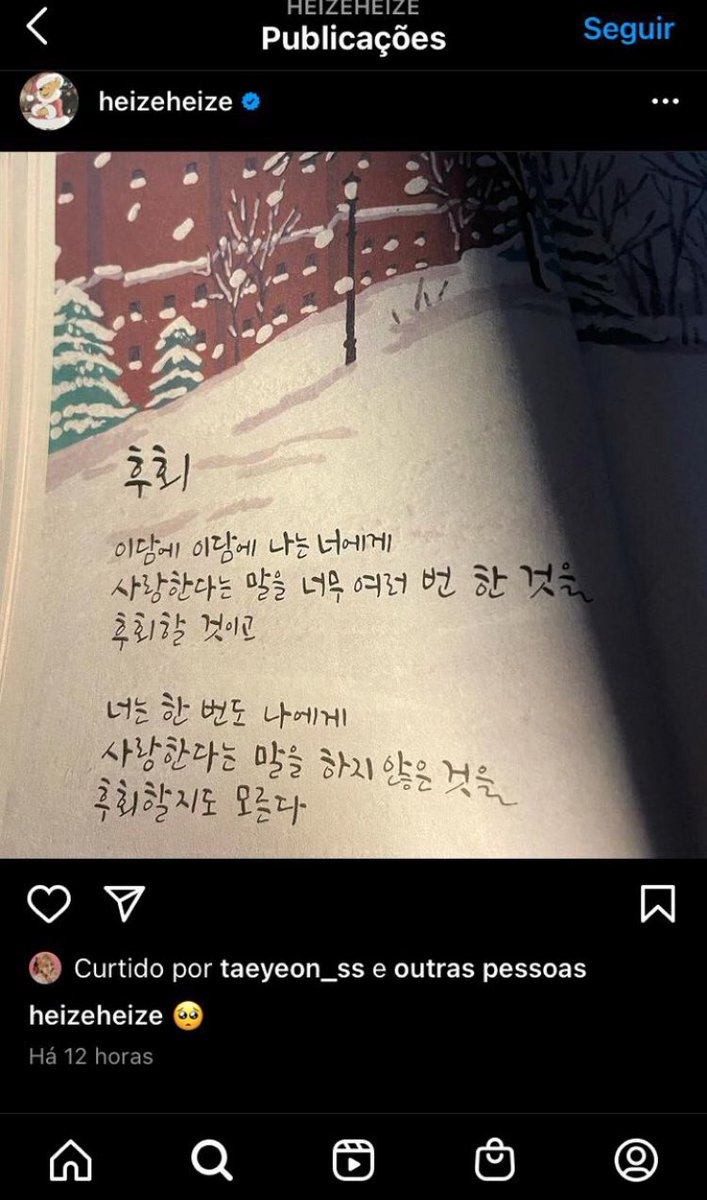 HEIZEHEIZE
Publicações
Seguir
heizeheize
후회
이담에 이담에 나는 너에게
사랑한다는 말을 너무 여러 번 한 것을
후회할 것이고
너는 한 번도 나에게
사랑한다는 말을 하지 않은 것을
후회할지도 모른다
Curtido por taeyeon_ss e outras pessoas
heizeheize 🥺
Há 12 horas